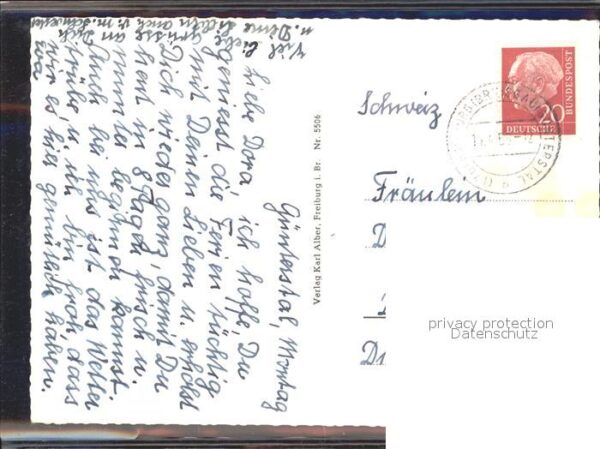 Günterstal, Montag
Liebe Dora, ich hoffe, Du
geniesst die Ferien tüchtig
mit Deinen Lieben u. erholst
Dich wieder ganz, damit Du
heut in 8 Tagen frisch u.
munter beginnen kannst.
Auch bei uns ist das Wetter
trübe u. ich bin froh, dass
wir es hier gemütlich haben.
Viel liebe Grüsse an Dich
u. Deine
Verlag Karl Alber, Freiburg i. Br. Nr. 5506
20
DEUTSCHE
BUNDESPOST
Schweiz
Fräulein
D
privacy protection
Datenschutz